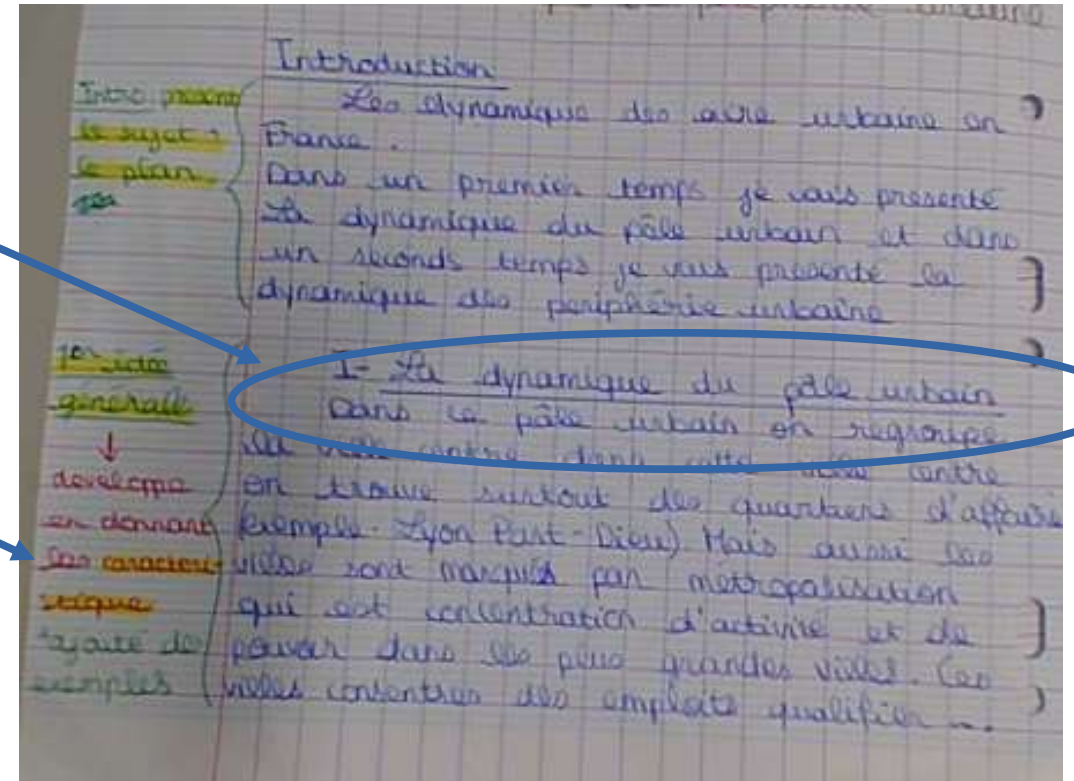 Introduction
Les dynamique des aire urbaine en
France.
Dans un premier temps je vais presenté
La dynamique du pôle urbain et dans
un seconds temps je vais presenté la
dynamique des periphérie urbaine
Intro présent
le sujet +
le plan
I- La dynamique du pôle urbain
Dans ce pôle urbain on regroupe
la ville centre dans cette ville centre
on trouve surtout des quartiers d'affaire
(exemple - Lyon Part-Dieu) Mais aussi les
villes sont marqués par metropolisation
qui est concentration d'activité et de
pouvoir dans les plus grandes villes. Ces
villes consentres des emploits qualifier ...
1er idée
générale
↓
developpe
en donnant
les caracteri
stique
+ajouté des
exemples